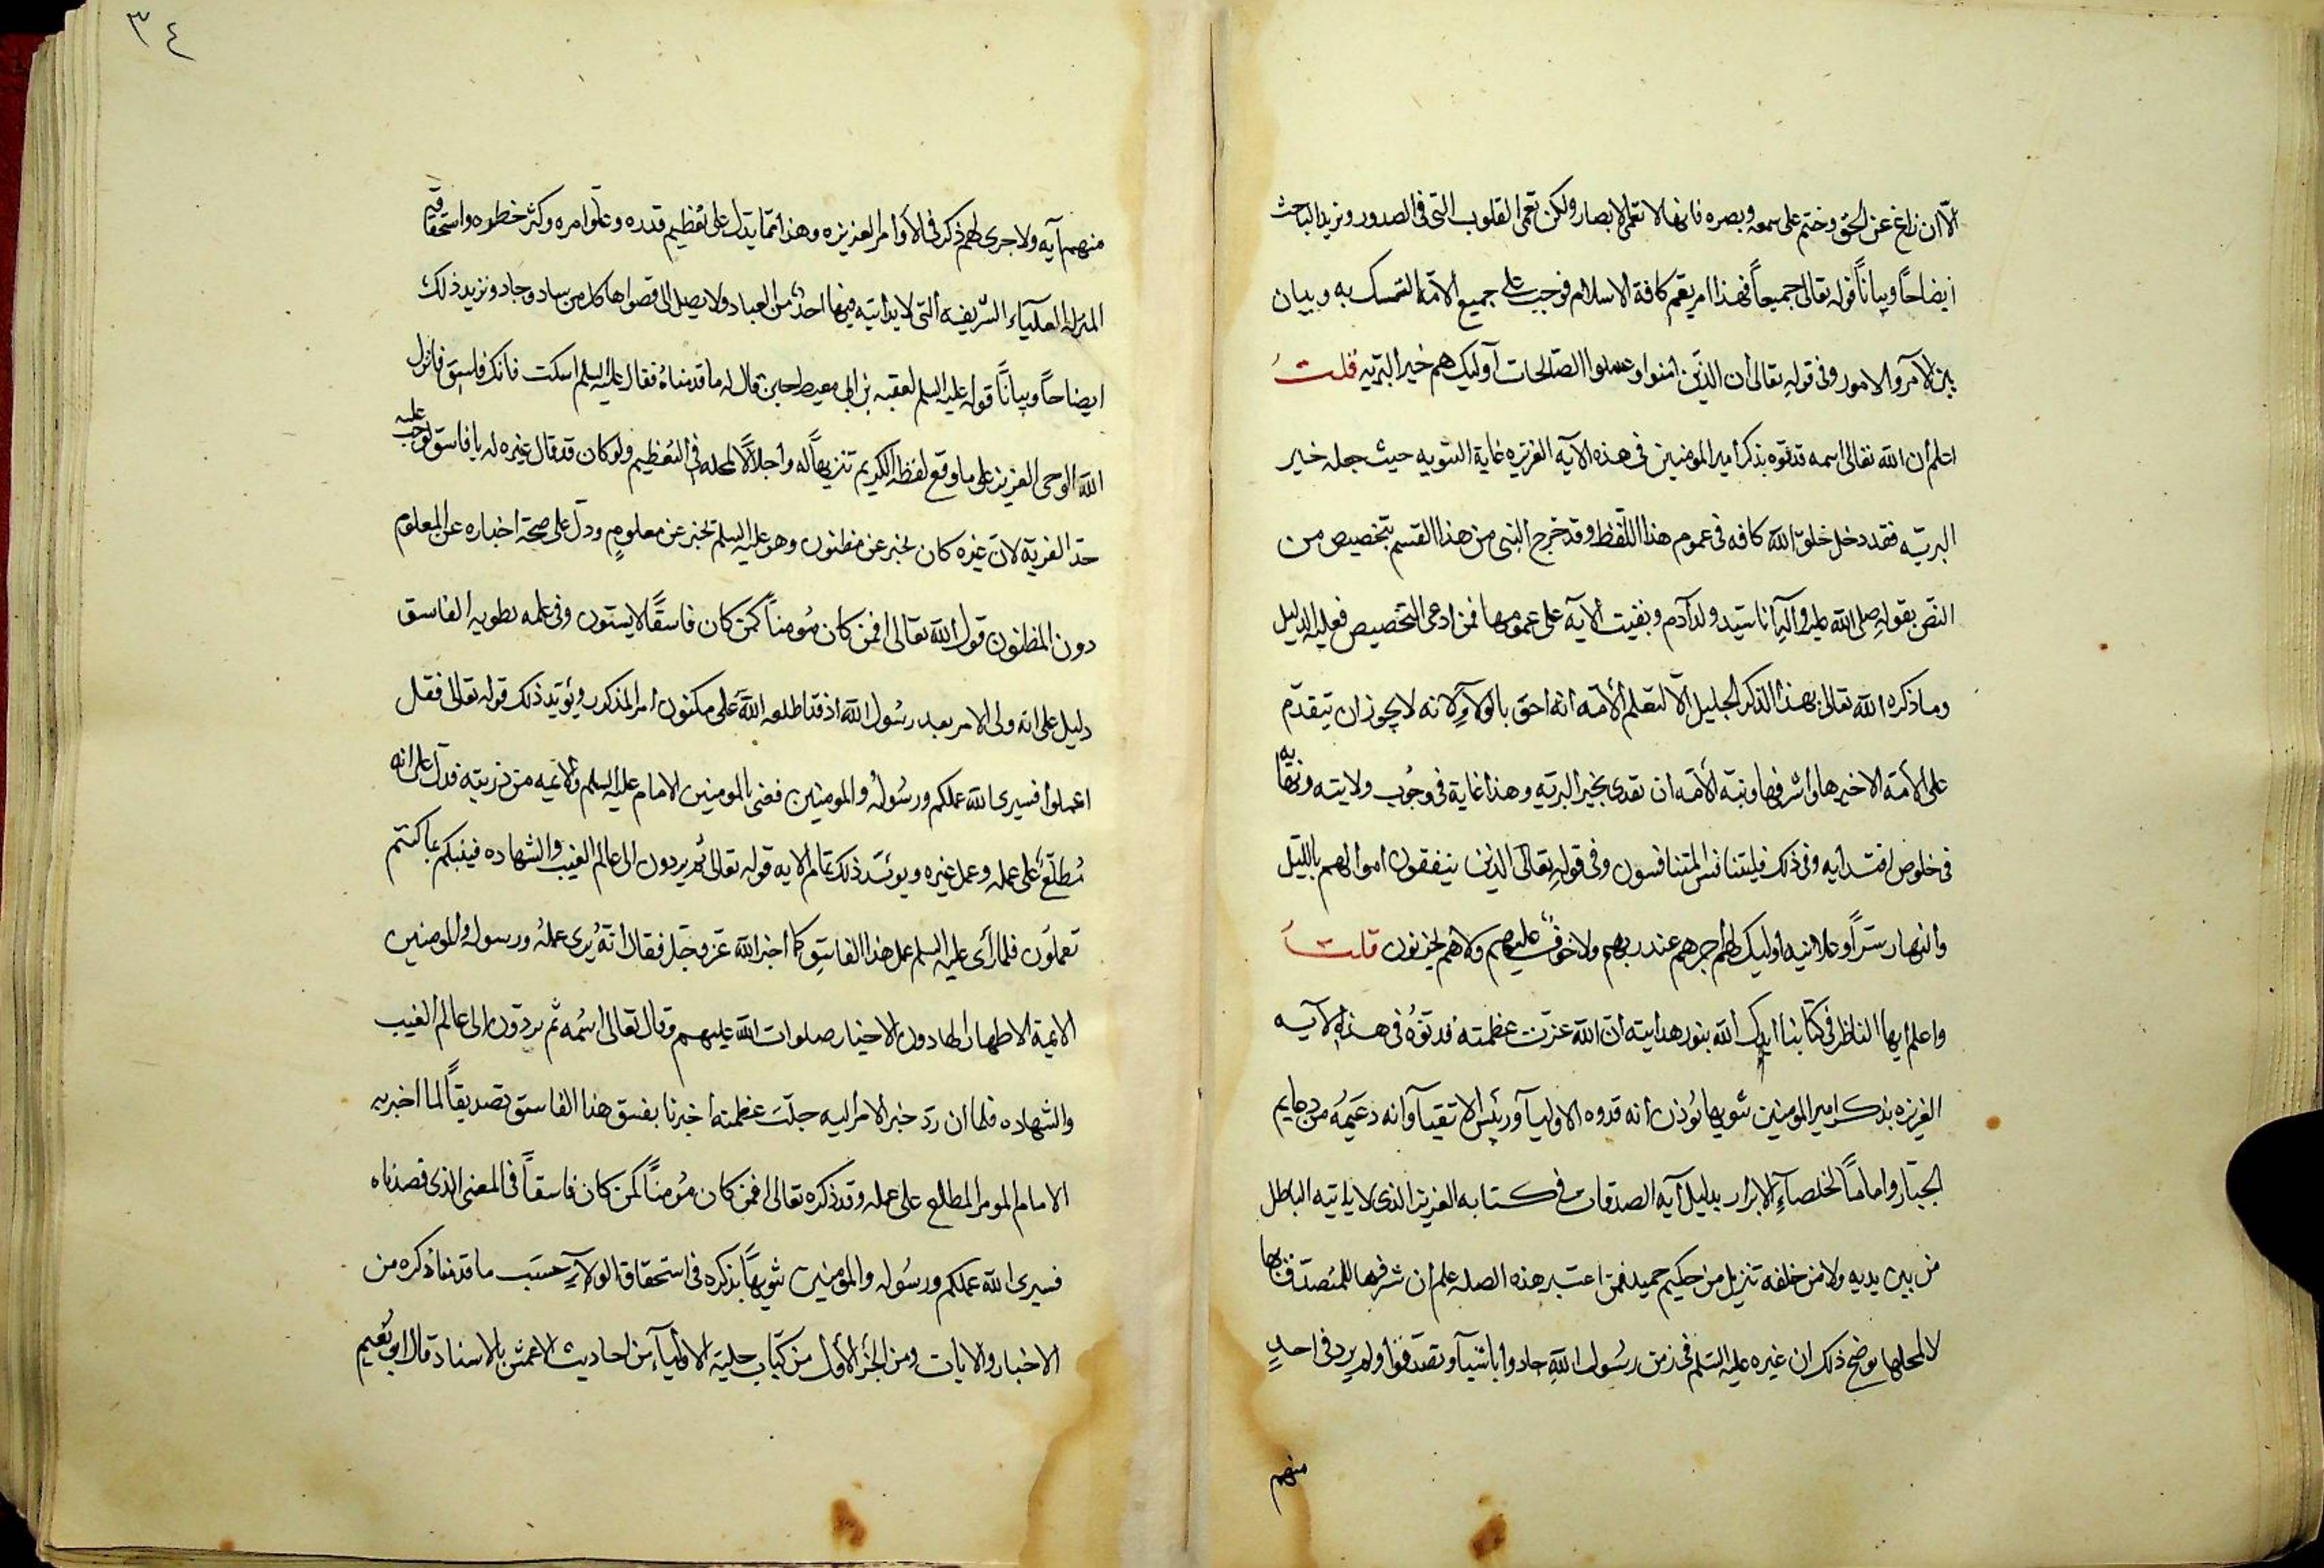 الّا ان زاغ عن الحق وختم على سمعه وبصره فانها لا تعمى الابصار ولكن تعمى القلوب التى فى الصدور ونزيد الباحث
ايضاحاً وبياناً قوله تعالى جميعاً فهذا امر يعم كافة الاسلام فوجب على جميع الامّة التمسك به وبيان
بين الآمر والامور وفى قوله تعالى ان الذين امنوا وعملوا الصّالحات اوليك هم خير البريّه قلتُ
اعلم ان الله تعالى اسمه قد نوّه بذكر امير المومنين فى هذه الآية العزيزه غاية التنويه حيث جعله خير
البريّه فقد دخل خلق الله كافه فى عموم هذا اللّفظ وقد خرج النبى من هذا القسم بتخصيص من
النصّ بقوله صلى الله عليه وآله انا سيّد ولد آدم وبقيت الآية على عمومها فمن ادعى التخصيص فعليه الدليل
وما ذكره الله تعالى بهذا الذكر الجليل الّا لتعلم الأمّه انه احق بالولآء لانه لا يجوز ان يتقدّم
على الأمّة الا خيرها واشرفها ونبّه الأمّه ان تقتدى بخير البريّه وهذا غاية فى وجُوب ولايته ونهايه
فى خلوص اقتدايه وفى ذلك فليتنافس المتنافسون وفى قوله تعالى الذين ينفقون اموالهم بالليّل
والنهار سرّاً وعلانيه اوليك لهم اجرهم عند ربهم ولا خوفٌ عليهم ولا هم يحزنون قلتُ
واعلم ايها الناظر فى كتابنا ايدك الله بنور هدايته ان الله عزت عظمته قد نوّه فى هذه الآيه
العزيزه بذكر امير المومنين تنويها يُوذن انه قدوه الاوليآ ورئيس الاتقيآ وانه دعيمُه من دعايم
الجبّار واماماً لخلصآء الابرار بدليل آيه الصدقات فى كتابه العزيز الذى لا ياتيه الباطل
من بين يديه ولا من خلفه تنزيل من حكيم حميد فمن اعتبر هذه الصله علم ان شرفها للمتصدّق بها
لا لمحلها يوضح ذلك ان غيره عليه السّلم فى زمن رسُول الله جادوا باشيآ وتصدّقوا ولم يرد فى احدٍ
منهم
٣٤
منهم آيه ولا جرى لهم ذكر فى الأوامر العزيزه وهذا ممّا يدل على تعظيم قدره وعلو امره وكثر خطره واستحقاقه
المنزله العليآء الشريفه التى لا يدانيه فيها احدٌ من العباد ولا يصل الى قصواها كل من ساد وجاد ونزيد ذلك
ايضاحاً وبياناً قوله عليه السلم لعقبه بن ابى معيط حين قال له ما قدمناهُ فقال عليه السلم اسكت فانك فاسق فانزل
الله الوحى العزيز على ما وقع لفظه الكريم تنزيهاً له واجلالاً لمحله فى التعظيم ولو كان قد قال غيره له يا فاسق لوجب عليه
حدّ الفرية لان غيره كان يخبر عن مظنون وهو عليه السلم يخبر عن معلومٍ ودلّ على صحّة اخباره عن المعلوم
دون المظنون قول الله تعالى افمن كان مُومناً كمن كان فاسقاً لا يستون وفى علمه بطويه الفاسق
دليل على انه ولى الامر بعد رسُول الله اذ قد اطلعه الله على مكنون امر المذكور ويُويّد ذلك قوله تعالى فقل
اعملوا فسيرى الله عملكم ورسُولُه والمومنين فعنى بالمومنين الامام عليه السلم والأئمه من ذريته فدلّ على انه
مُطلّعٌ على عمله وعمل غيره ويويّد ذلك تمام الايه قوله تعالى ثم يردون الى عالم الغيب والشهاده فينبكم بما كنتم
تعملون فلما رأى عليه السلم عمل هذا الفاسق كما اخبر الله عزّ وجلّ فقال انهُ يُرى عملهُ ورسوله والمومنين
الايمة الاطهار الهادون الاخيار صلوات الله عليهم وقال تعالى اسمُه ثم يردّون الى عالم الغيب
والشهاده فلما ان ردّ خبر الامر اليه جلّت عظمته اخبرنا بفسق هذا الفاسق تصديقاً لما اخبر به
الامام المومن المطلع على عمله وقد ذكره تعالى افمن كان مُومناً كمن كان فاسقاً فى المعنى الذى قصدناه
فسيرى الله عملكم ورسُوله والمومنين تنويهاً بذكره فى استحقاق الولآءِ حسَب ما قدمنا ذكره من
الاخبار والايات ومن الجزء الأول من كتاب حلية الاوليآء من احاديث الاعمش بالاسناد قال ابو نُعيم